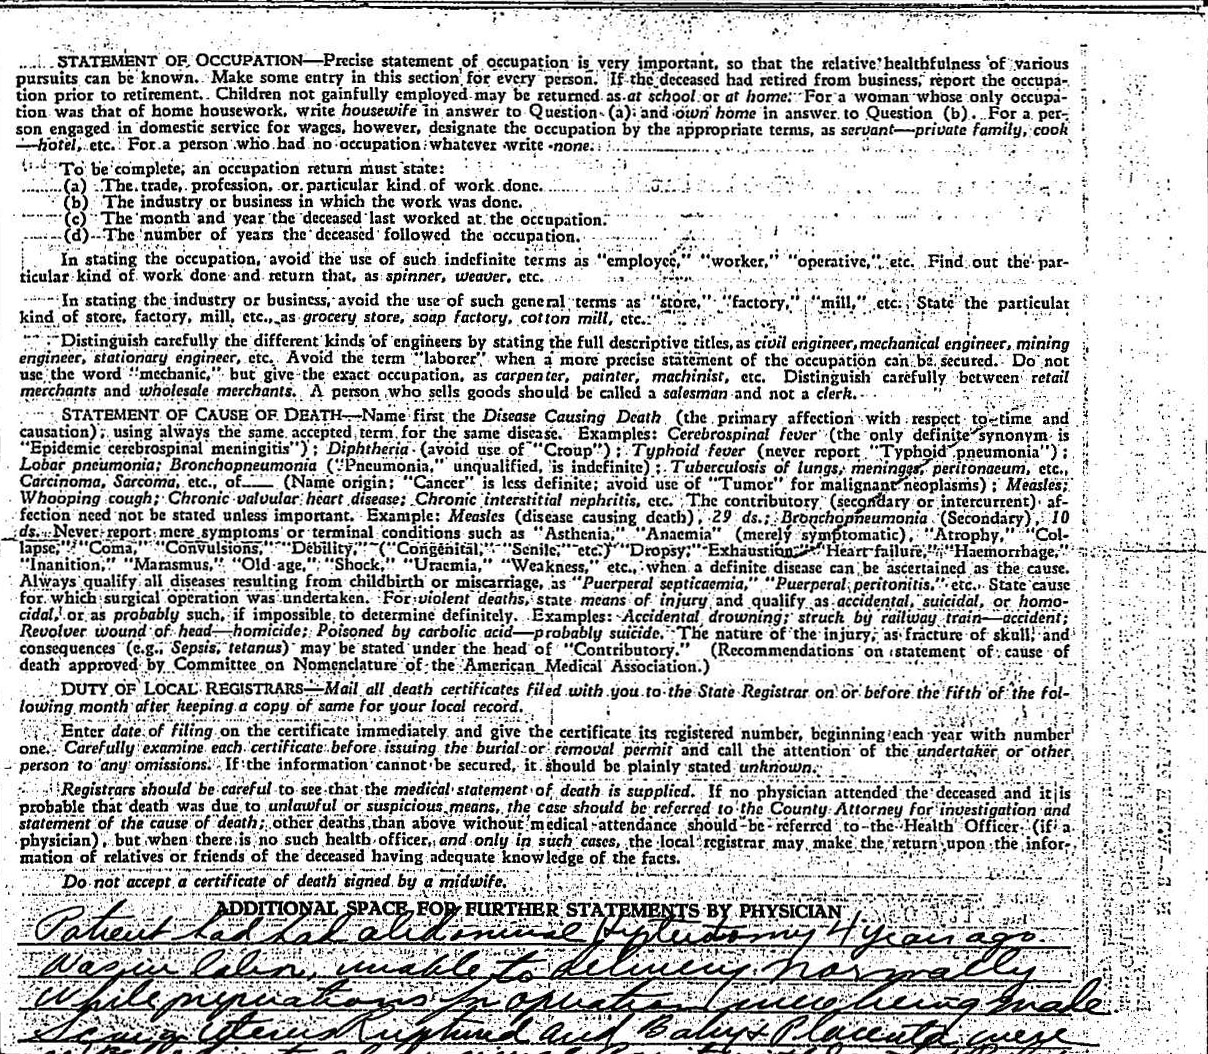 STATEMENT OF OCCUPATION—Precise statement of occupation is very important, so that the relative healthfulness of various
pursuits can be known. Make some entry in this section for every person. If the deceased had retired from business, report the occupa-
tion prior to retirement. Children not gainfully employed may be returned as at school or at home. For a woman whose only occupa-
tion was that of home housework, write housewife in answer to Question (a) and own home in answer to Question (b). For a per-
son engaged in domestic service for wages, however, designate the occupation by the appropriate terms, as servant—private family, cook
—hotel, etc. For a person who had no occupation whatever write none.
To be complete, an occupation return must state:
(a) The trade, profession, or particular kind of work done.
(b) The industry or business in which the work was done.
(c) The month and year the deceased last worked at the occupation.
(d) The number of years the deceased followed the occupation.
In stating the occupation, avoid the use of such indefinite terms as "employee," "worker," "operative," etc. Find out the par-
ticular kind of work done and return that, as spinner, weaver, etc.
In stating the industry or business, avoid the use of such general terms as "store," "factory," "mill," etc. State the particular
kind of store, factory, mill, etc., as grocery store, soap factory, cotton mill, etc.
Distinguish carefully the different kinds of engineers by stating the full descriptive titles, as civil engineer, mechanical engineer, mining
engineer, stationary engineer, etc. Avoid the term "laborer" when a more precise statement of the occupation can be secured. Do not
use the word "mechanic," but give the exact occupation, as carpenter, painter, machinist, etc. Distinguish carefully between retail
merchants and wholesale merchants. A person who sells goods should be called a salesman and not a clerk.
STATEMENT OF CAUSE OF DEATH—Name first the Disease Causing Death (the primary affection with respect to time and
causation); using always the same accepted term for the same disease. Examples: Cerebrospinal fever (the only definite synonym is
"Epidemic cerebrospinal meningitis"); Diphtheria (avoid use of "Croup"); Typhoid fever (never report "Typhoid pneumonia");
Lobar pneumonia; Bronchopneumonia ("Pneumonia," unqualified, is indefinite); Tuberculosis of lungs, meninges, peritonaeum, etc.,
Carcinoma, Sarcoma, etc., of—— (Name origin; "Cancer" is less definite; avoid use of "Tumor" for malignant neoplasms); Measles;
Whooping cough; Chronic valvular heart disease; Chronic interstitial nephritis, etc. The contributory (secondary or intercurrent) af-
fection need not be stated unless important. Example: Measles (disease causing death), 29 ds.; Bronchopneumonia (Secondary), 10
ds. Never report mere symptoms or terminal conditions such as "Asthenia," "Anaemia" (merely symptomatic), "Atrophy," "Col-
lapse," "Coma," "Convulsions," "Debility," ("Congenital," "Senile," etc.) "Dropsy," Exhaustion," "Heart failure," "Haemorrhage,"
"Inanition," "Marasmus," "Old age," "Shock," "Uraemia," "Weakness," etc., when a definite disease can be ascertained as the cause.
Always qualify all diseases resulting from childbirth or miscarriage, as "Puerperal septicaemia," "Puerperal peritonitis," etc. State cause
for which surgical operation was undertaken. For violent deaths, state means of injury and qualify as accidental, suicidal, or homo-
cidal, or as probably such, if impossible to determine definitely. Examples: Accidental drowning; struck by railway train—accident;
Revolver wound of head—homicide; Poisoned by carbolic acid—probably suicide. The nature of the injury, as fracture of skull, and
consequences (e.g., Sepsis, tetanus) may be stated under the head of "Contributory." (Recommendations on statement of cause of
death approved by Committee on Nomenclature of the American Medical Association.)
DUTY OF LOCAL REGISTRARS—Mail all death certificates filed with you to the State Registrar on or before the fifth of the fol-
lowing month after keeping a copy of same for your local record.
Enter date of filing on the certificate immediately and give the certificate its registered number, beginning each year with number
one. Carefully examine each certificate before issuing the burial or removal permit and call the attention of the undertaker or other
person to any omissions. If the information cannot be secured, it should be plainly stated unknown.
Registrars should be careful to see that the medical statement of death is supplied. If no physician attended the deceased and it is
probable that death was due to unlawful or suspicious means, the case should be referred to the County Attorney for investigation and
statement of the cause of death; other deaths than above without medical attendance should be referred to the Health Officer (if a
physician), but when there is no such health officer, and only in such cases, the local registrar may make the return upon the infor-
mation of relatives or friends of the deceased having adequate knowledge of the facts.
Do not accept a certificate of death signed by a midwife.
ADDITIONAL SPACE FOR FURTHER STATEMENTS BY PHYSICIAN
Patient had had abdominal 4 years ago.
Was in labor, unable to delivery normally
While preparations for operation were being made
Uterus Ruptured and Baby & Placenta were